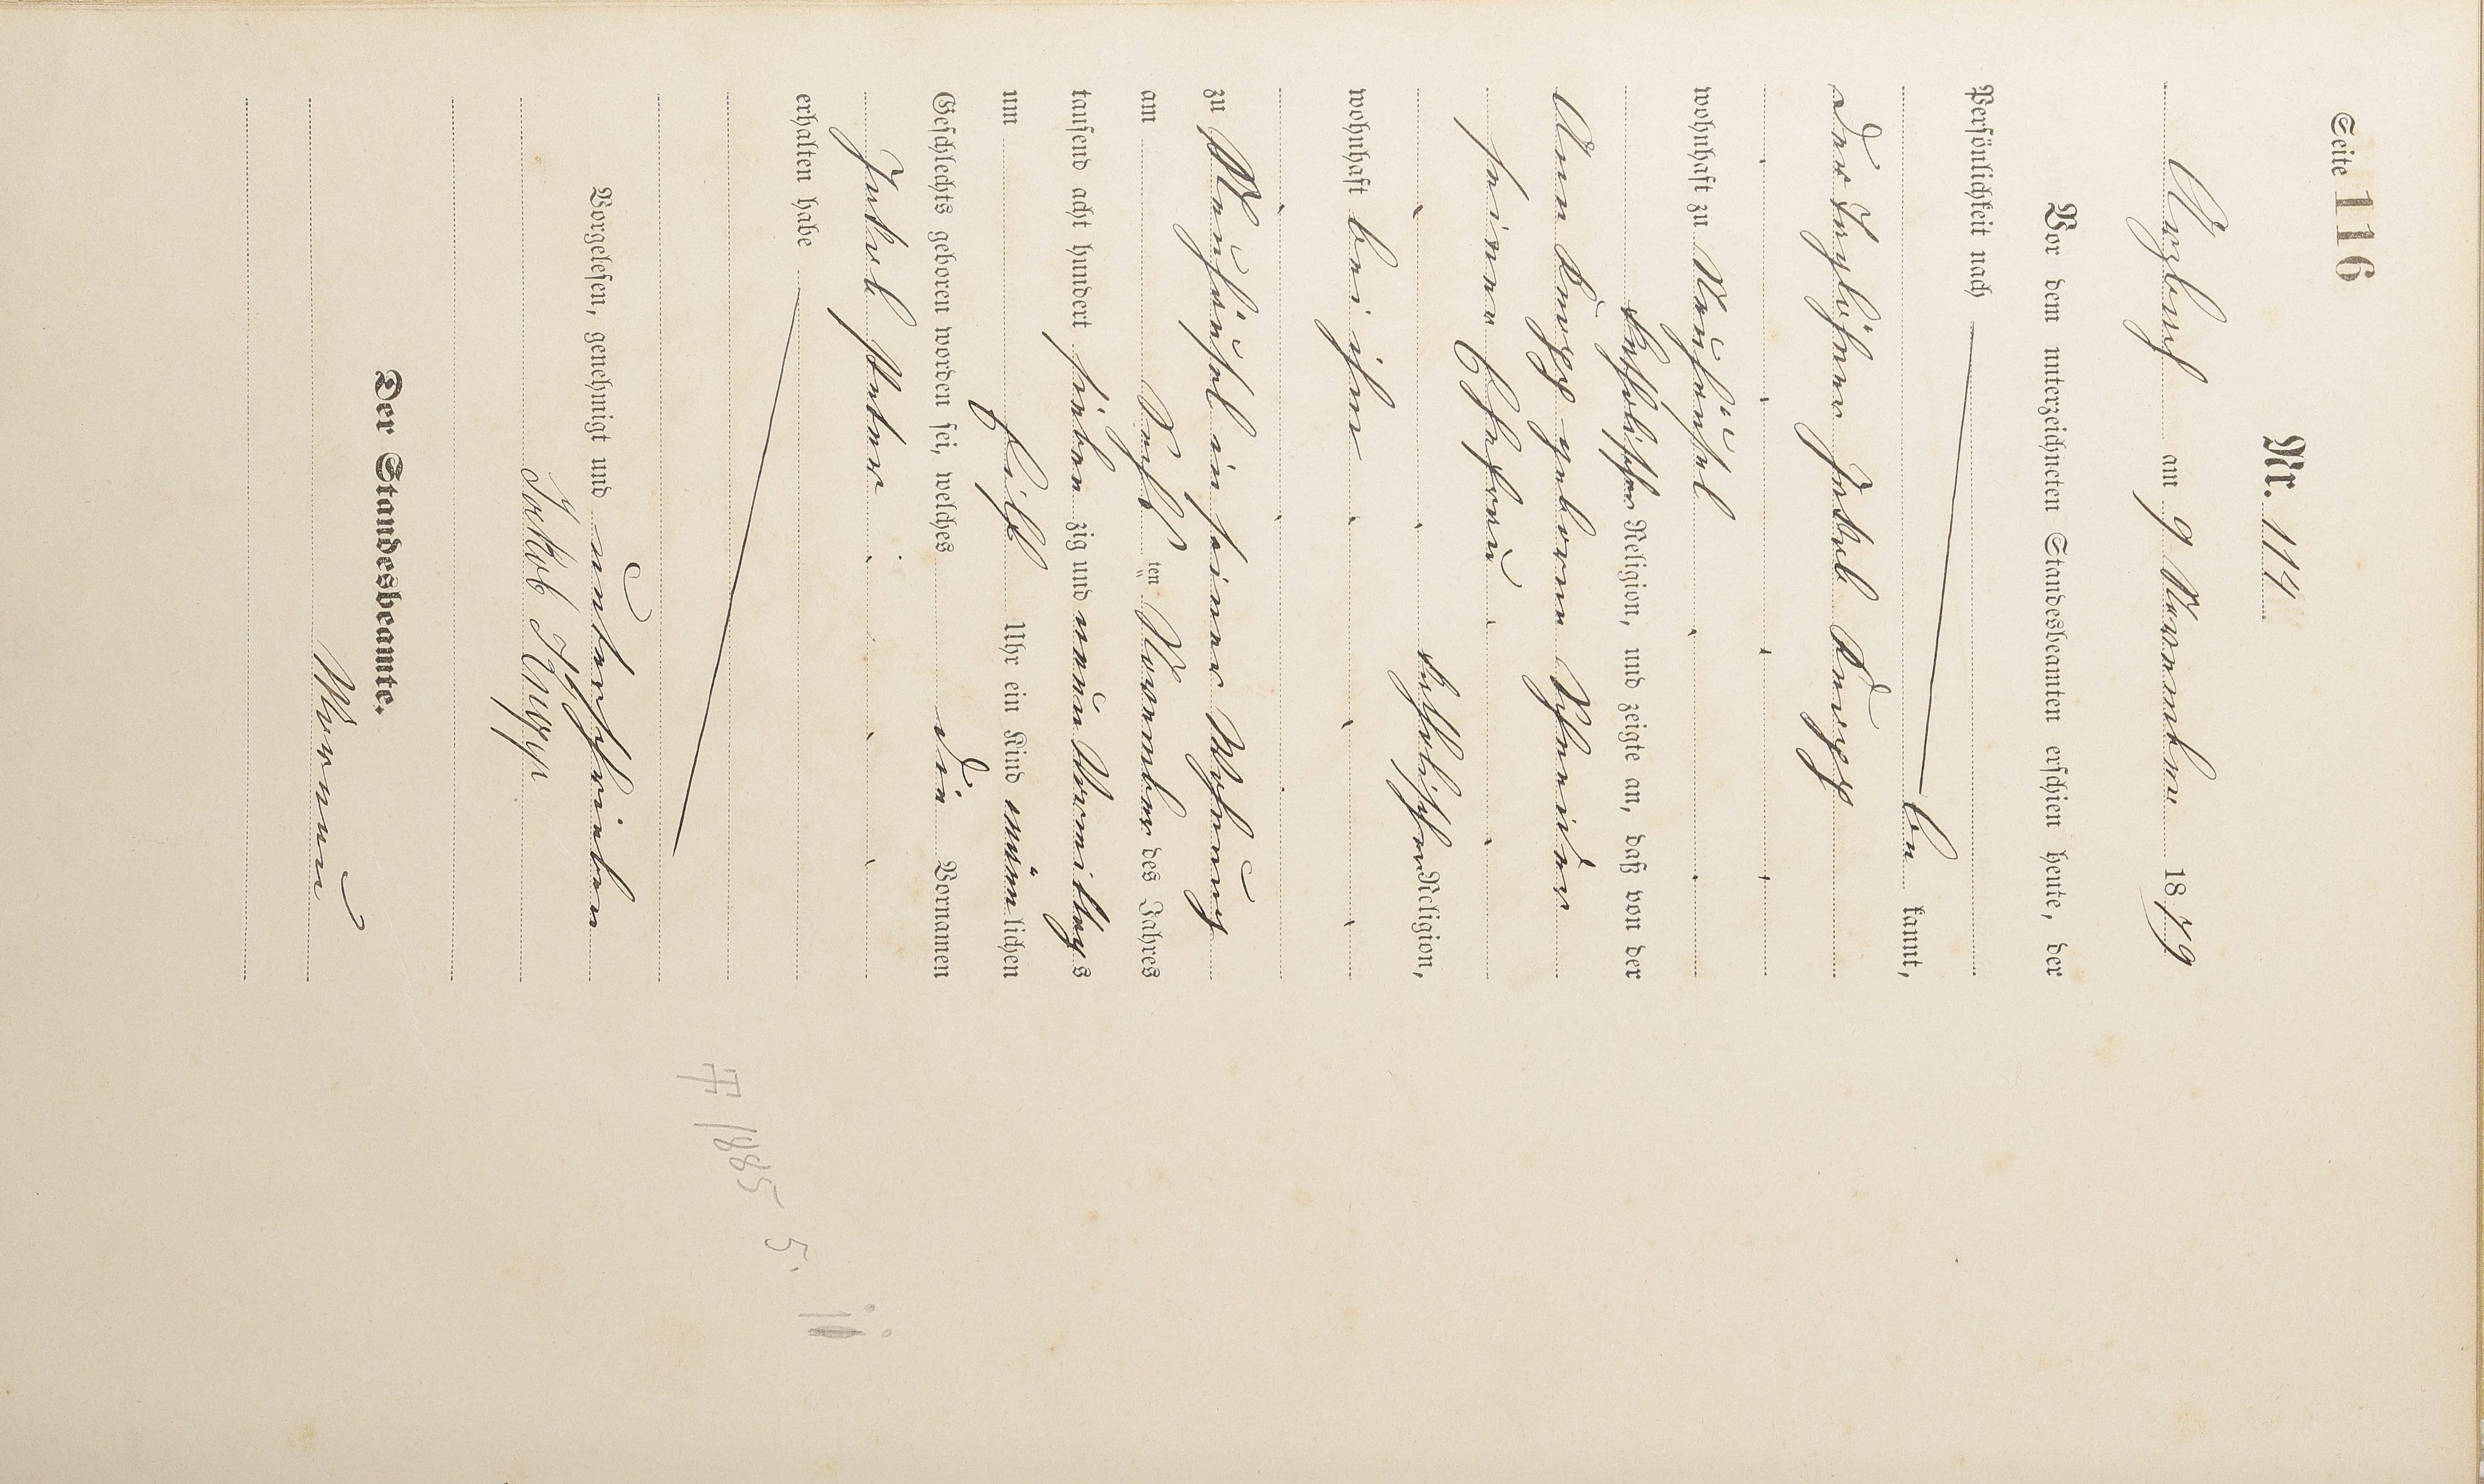 Seite 116
Nr. 114
am 9 November 1879
Vor dem unterzeichneten Standesbeamten erschien heute, der
Persönlichkeit nach
be kannt,
der Taglöhner Jakob Knopp
wohnhaft zu Neuhäusel
katholischer Religion, und zeigte an, daß von der
Knopp geborene Schneider
seiner Ehefrau
katholischer Religion,
wohnhaft bei ihm
zu Neuhäusel in seiner Wohnung
am ten November des Jahres
tausend acht hundert sieben zig und neun Vormittags
um Uhr ein Kind männlichen
Geschlechts geboren worden sei, welches die Vornamen
Jakob Peter
erhalten habe
Vorgelesen, genehmigt und unterschrieben
Jakob Knopp
Der Standesbeamte.
1885 5.